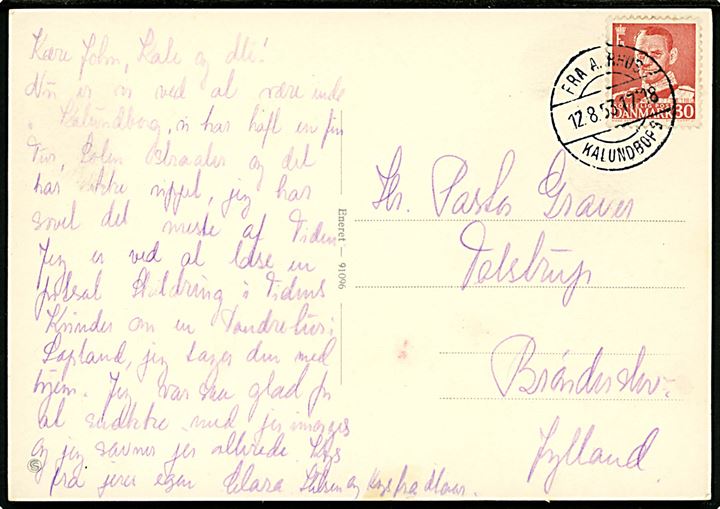 Kære John, Kalle og
Nu er vi ved at være inde
i Kalundborg, vi har haft en fin
Tur, Solen straaler og det
har ikke vippet, jeg har
sovet det meste af Tiden
Jeg er ved at læse en
Skildring i Tidens
Kvinder om en Vandretur i
Lapland, jeg tager den med
hjem. Jeg var saa glad for
at snakke med jer imorges
og jeg savner jer allerede. Kys
fra jeres egen Clara Hilsen og Kys fra
Eneret — 91096
FRA AARHUS
12.8.53 17 28
KALUNDBORG
DANMARK 30
Hr. Pastor Graver
Tolstrup
Brønderslev.
Jylland.